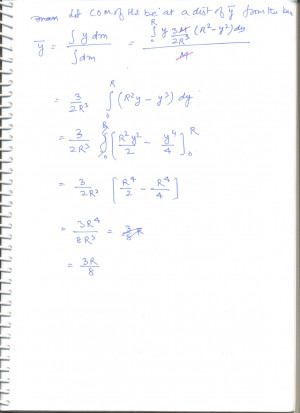 Let COM of the be at a dist of ȳ from the
ȳ = ∫ y dm / ∫ dm = ∫₀ᴿ y 3M/2R³ (R² - y²) dy / M
= 3/2R³ ∫₀ᴿ (R²y - y³) dy
= 3/2R³ ∫₀ᴿ [R²y²/2 - y⁴/4]₀ᴿ
= 3/2R³ [R⁴/2 - R⁴/4]
= 3R⁴/8R³ = 3/8 R
= 3R/8